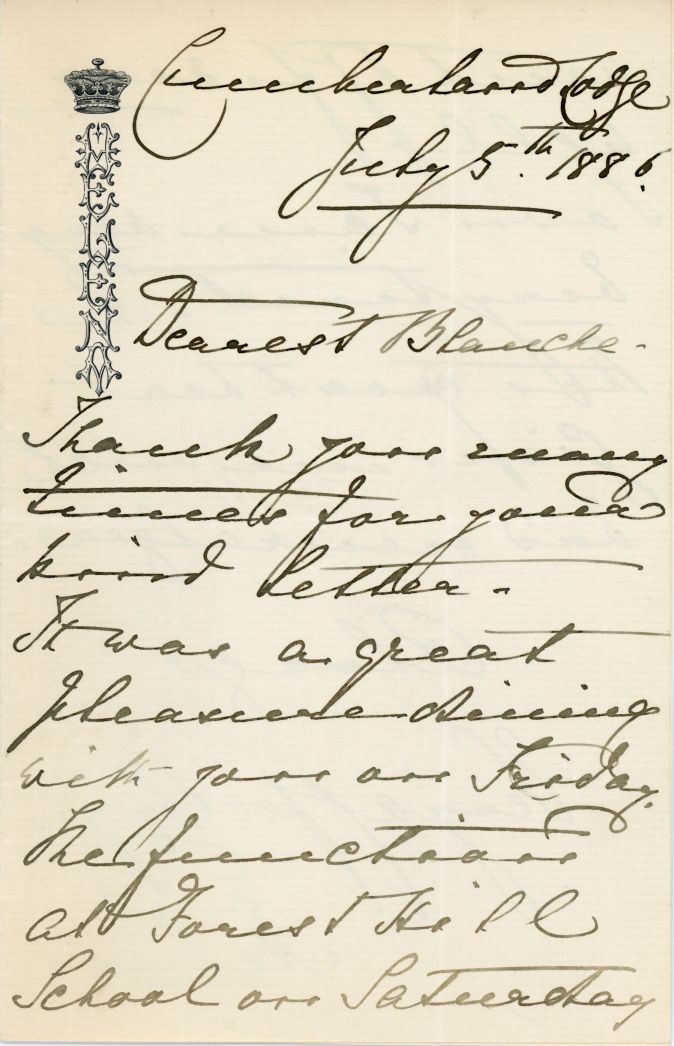 HELENA
Cumberland Lodge
July 5.th 1886.
Dearest Blanche -
Thank you many
times for your
kind letter -
It was a great
pleasure dining
with you on Friday.
The function
at Forest Hill
School on Saturday